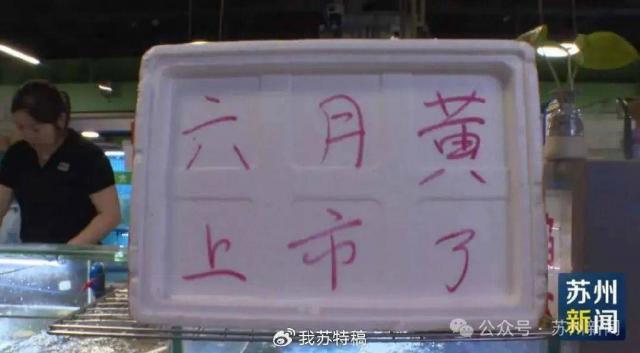 六月黄
上市了
苏州
新闻
我苏特稿
公众号·苏州新闻